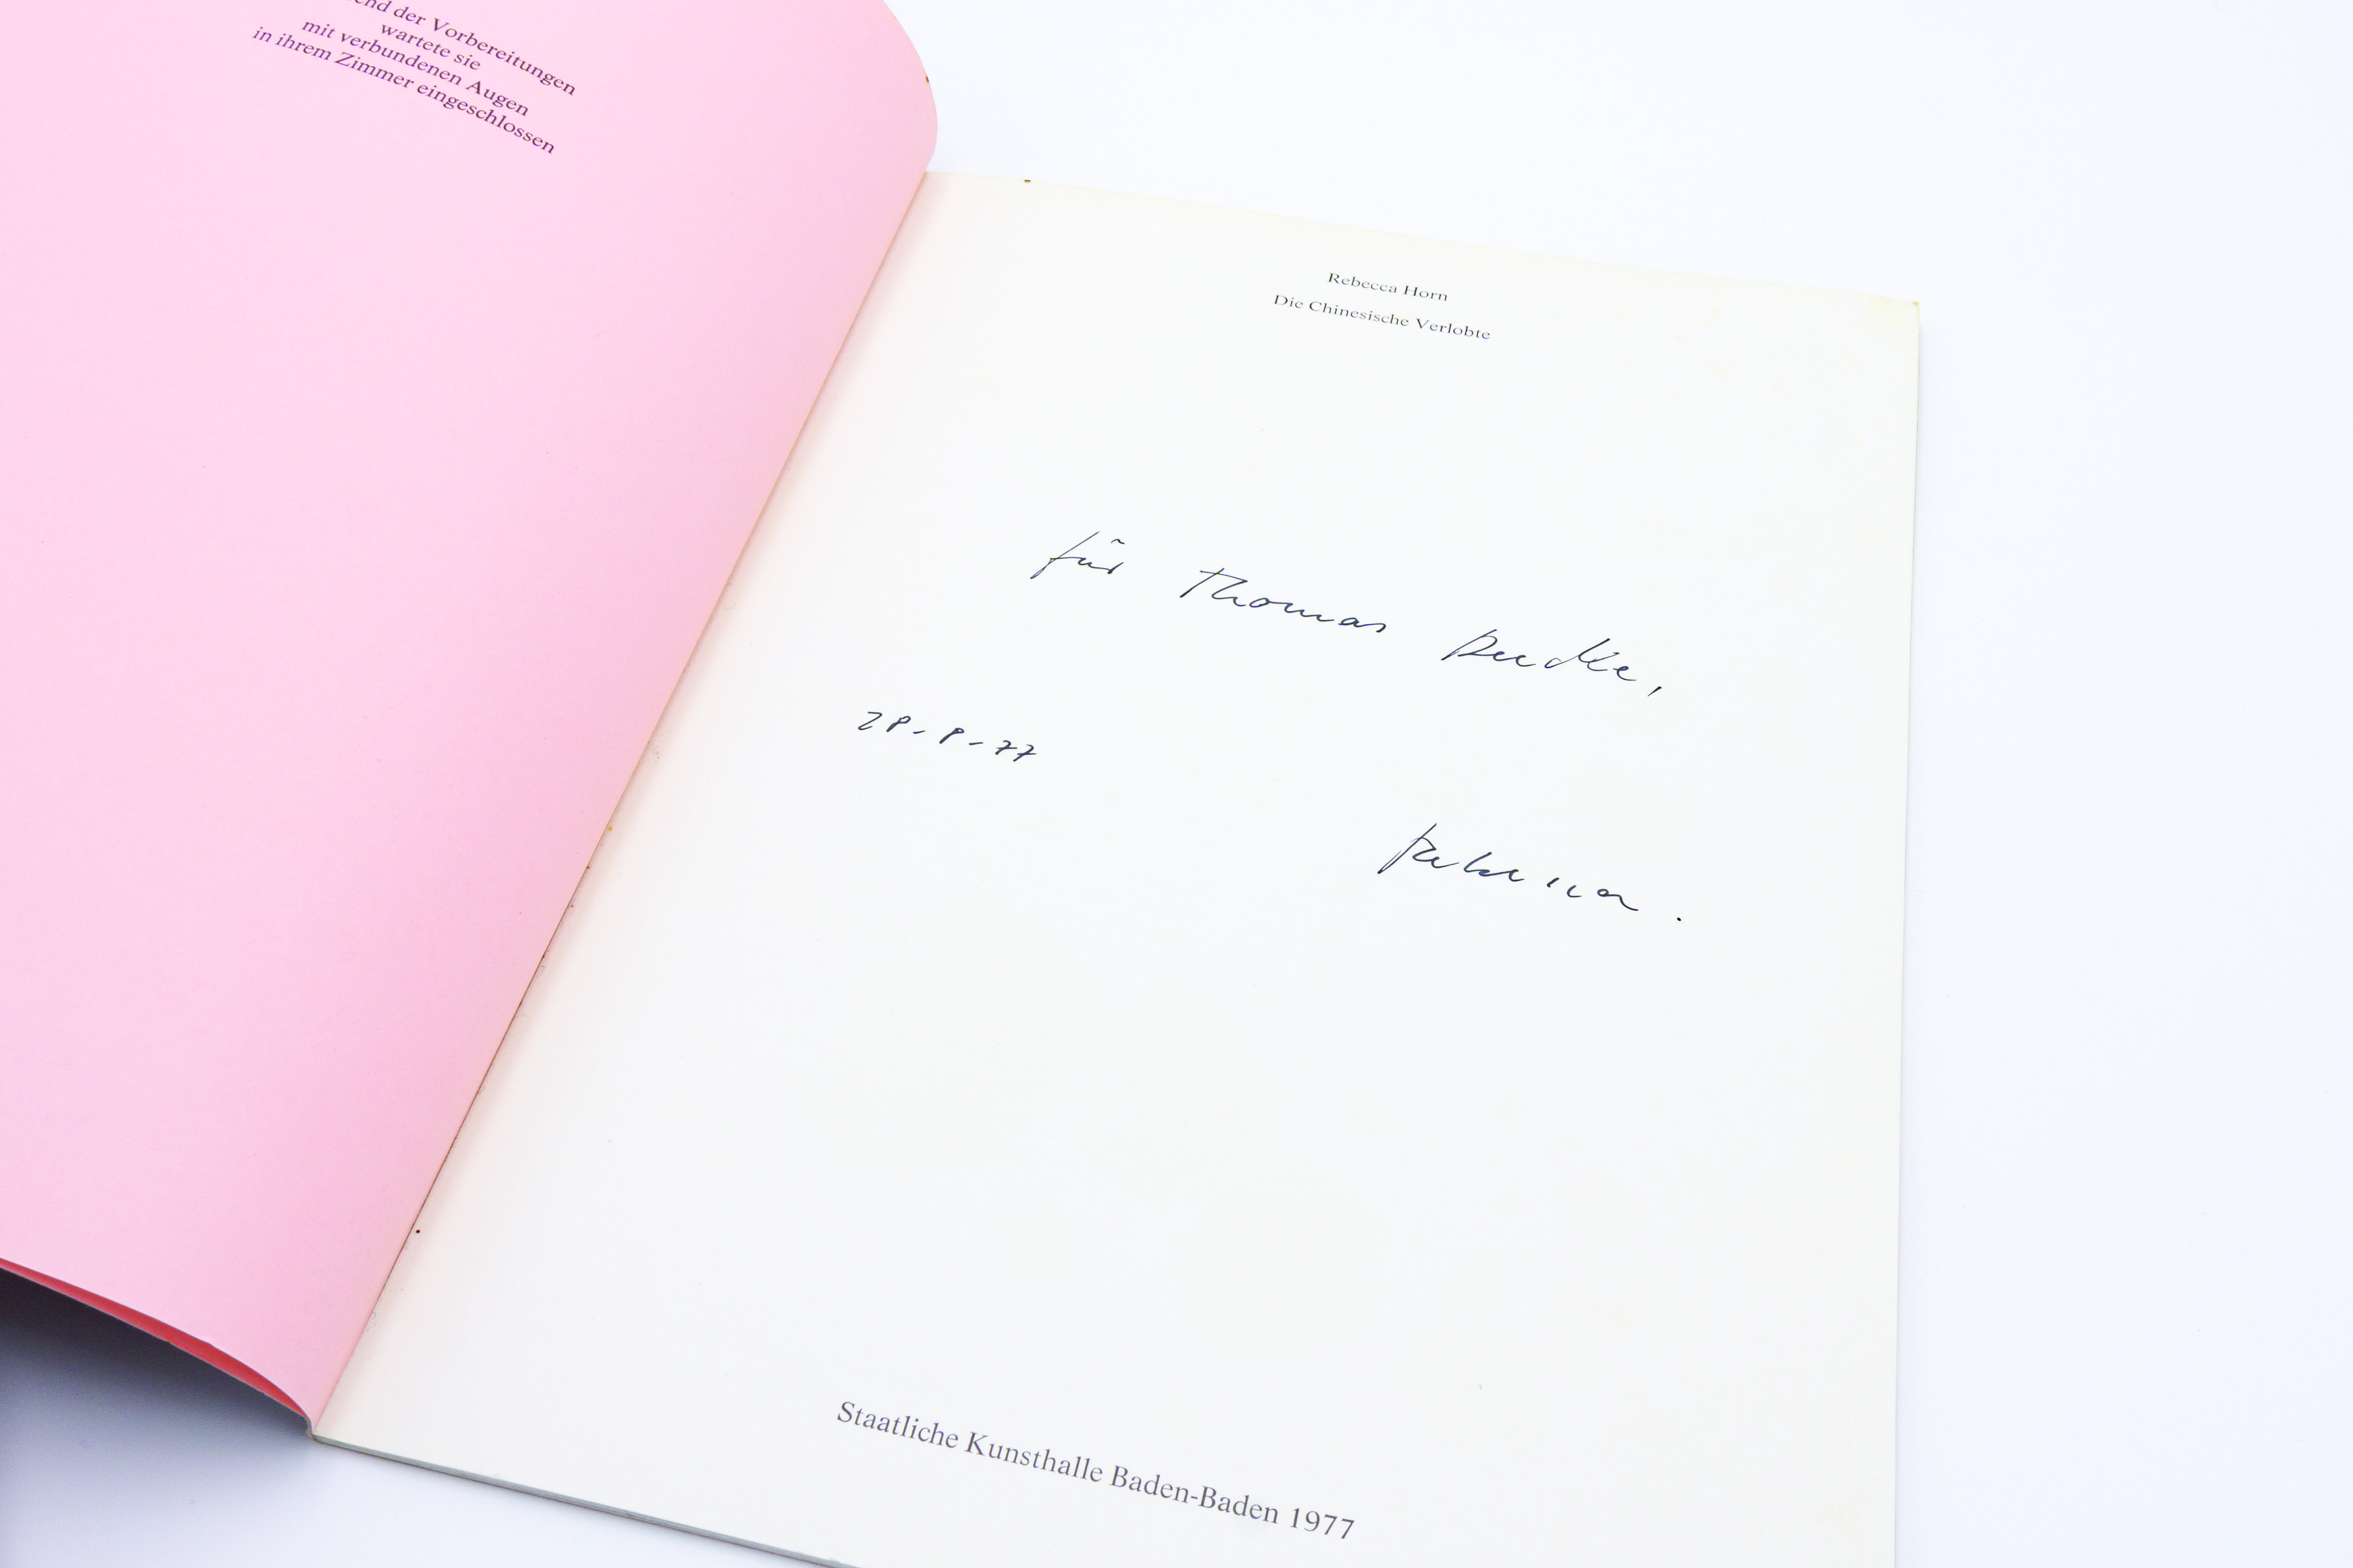 der Vorbereitungen
wartete sie
mit verbundenen Augen
in ihrem Zimmer eingeschlossen
Rebecca Horn
Die Chinesische Verlobte
für Thomas
28-8-77
Rebecca.
Staatliche Kunsthalle Baden-Baden 1977